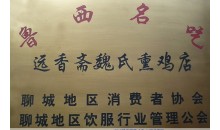 鲁西名吃
远香斋魏氏熏鸡店
聊城地区消费者协会
聊城地区饮服行业管理公会